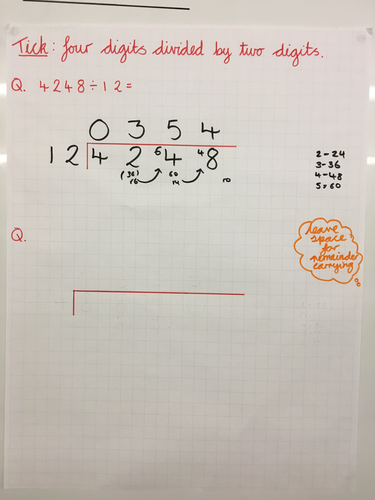 Tick: four digits divided by two digits.
Q. 4248÷12=
0 3 5 4
12 4 2 ⁶4 ⁴8
(36) 60
10
2-24
3-36
4-48
5=60
Q.
leave
space
for
remainder
carrying